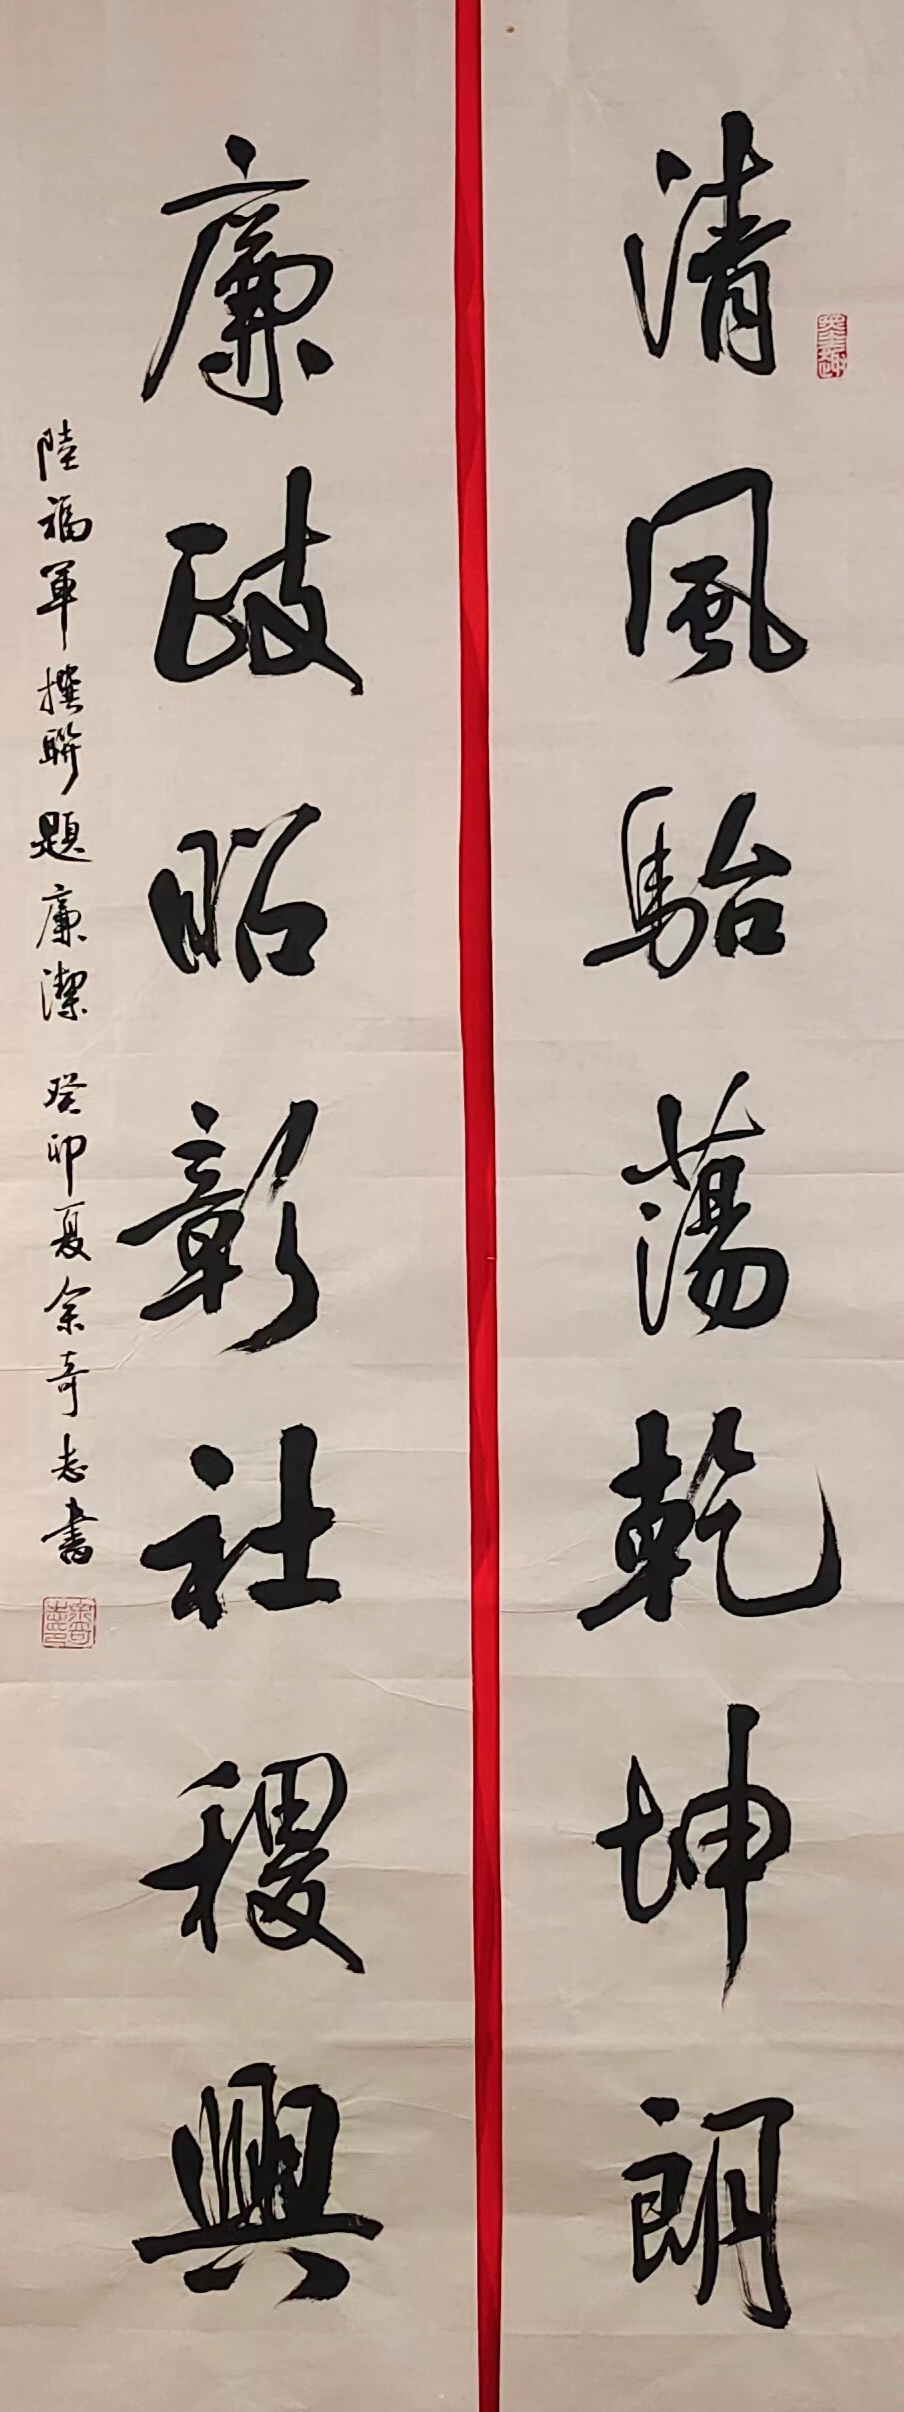 清風駘蕩乾坤朗
廉政昭彰社稷興
陸福軍撰聯題廉潔 癸卯夏余奇志書